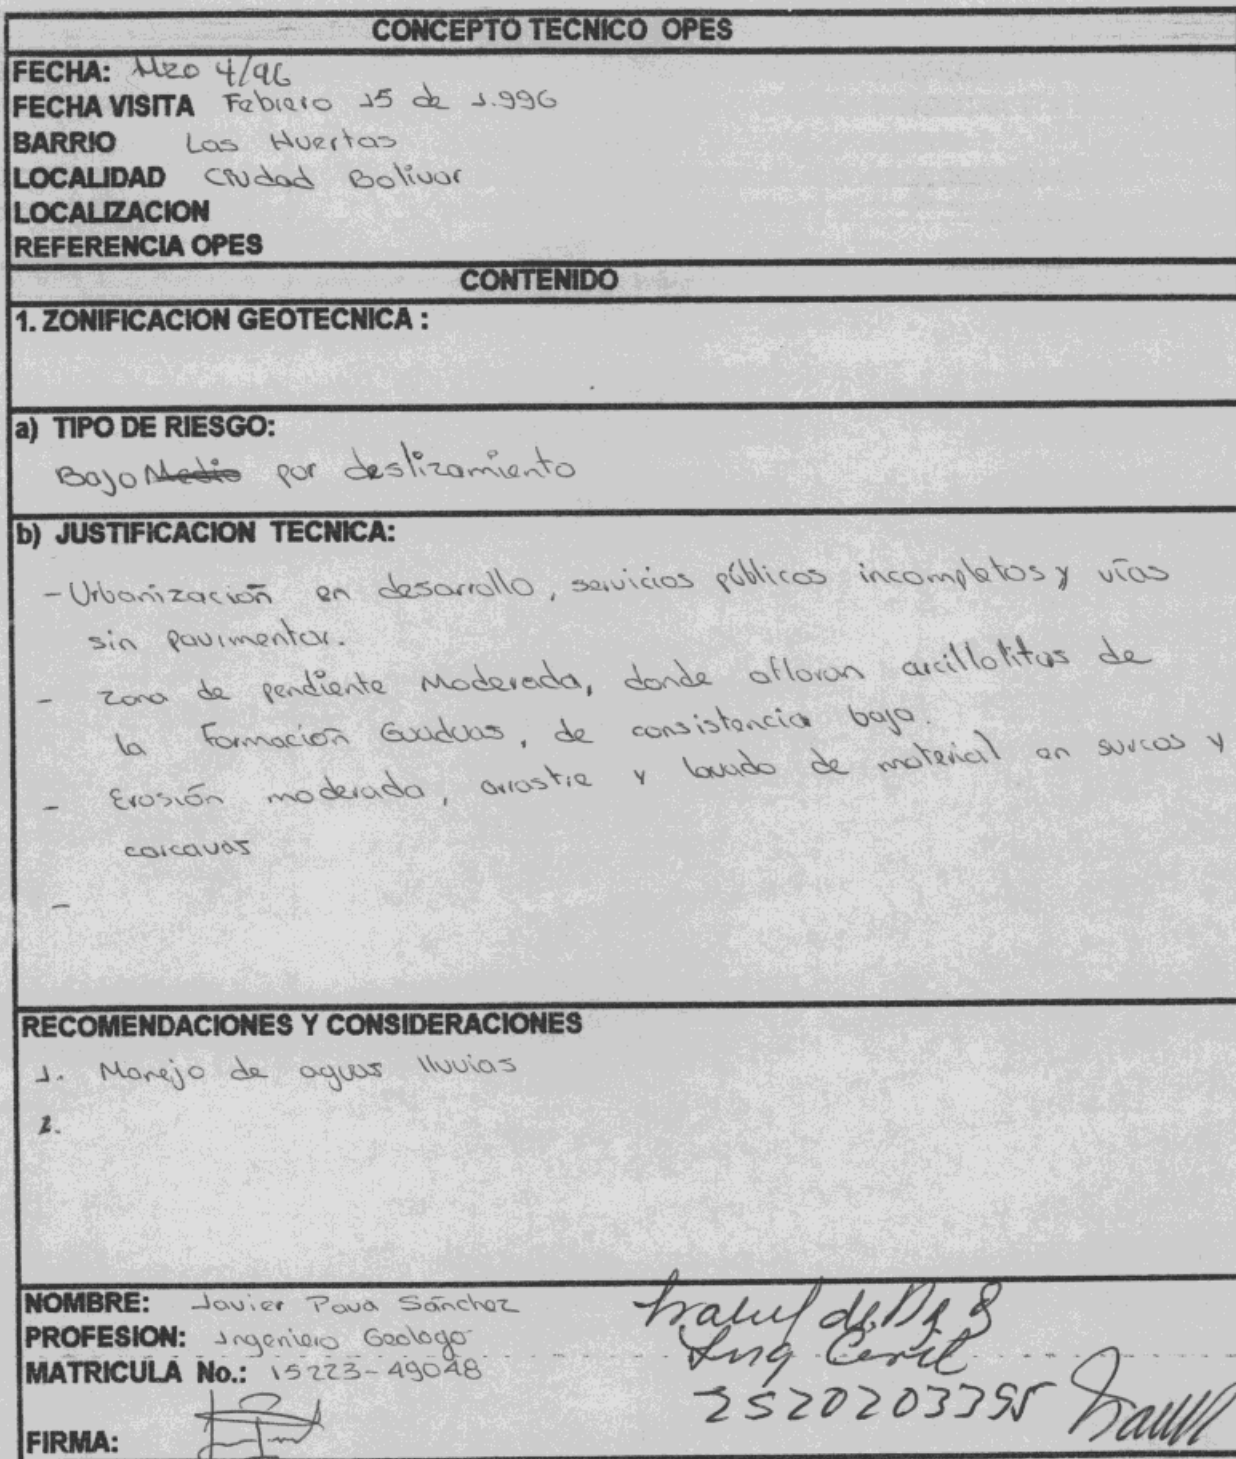 CONCEPTO TECNICO OPES
FECHA: Mzo 4/96
FECHA VISITA Febrero 15 de 1.996
BARRIO Las Huertas
LOCALIDAD Ciudad Bolivar
LOCALIZACION
REFERENCIA OPES
CONTENIDO
1. ZONIFICACION GEOTECNICA :
a) TIPO DE RIESGO:
Bajo Medio por deslizamiento
b) JUSTIFICACION TECNICA:
- Urbanización en desarrollo, servicios públicos incompletos y vías
sin pavimentar.
- Zona de pendiente Moderada, donde afloran arcillolitas de
la Formación Guaduas, de consistencia baja.
- Erosión moderada, arrastre y lavado de material en surcos y
carcavas
-
RECOMENDACIONES Y CONSIDERACIONES
1. Manejo de aguas lluvias
2.
NOMBRE: Javier Pava Sánchez
PROFESION: Ingeniero Geologo
MATRICULA No.: 15223-49048
FIRMA:
Ing Civil
2520203395